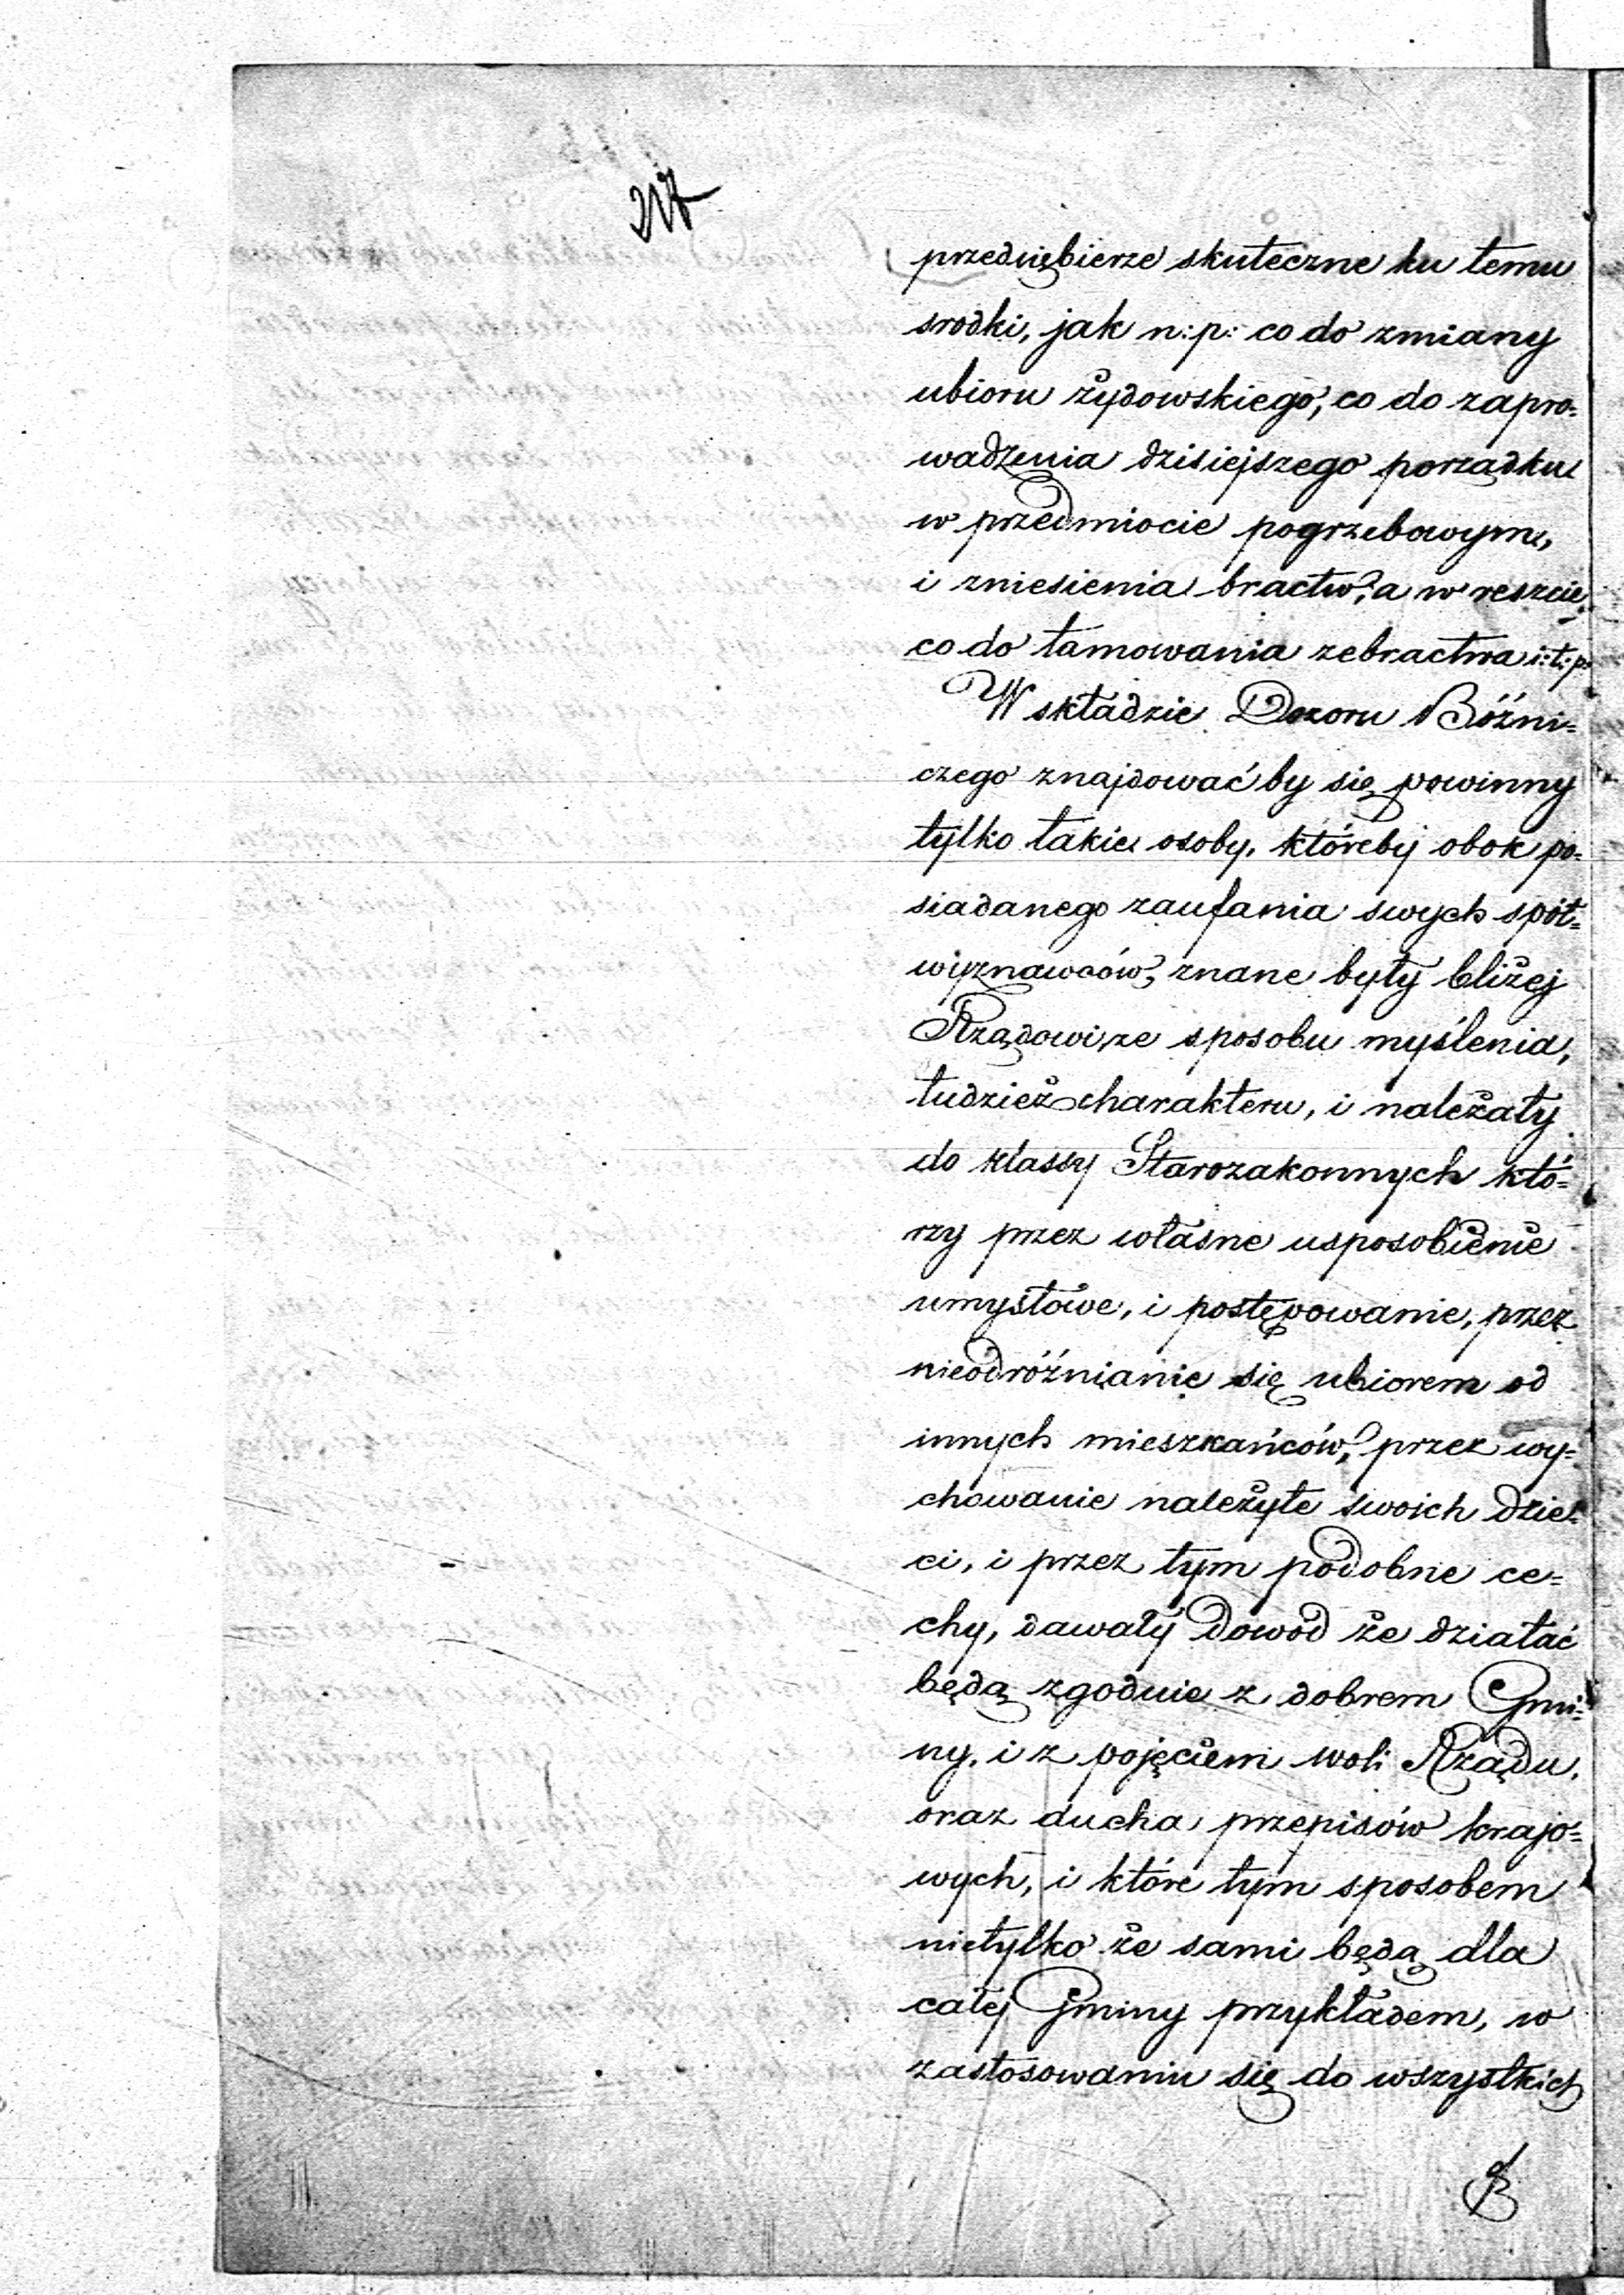 217
przedsiębierze skuteczne ku temu
srodki, jak n:p: co do zmiany
ubioru żydowskiego, co do zapro=
wadzenia dzisiejszego porządku
w przedmiocie pogrzebowym,
i zniesienia bractw, a w reszcie,
co do tamowania żebractwa i:t:p:
W składzie Dozoru Bóźni=
czego znajdować by się powinny
tylko takie osoby, któreby obok po=
siadanego zaufania swych spół=
wyznawców, znane były bliżej
Rządowi, ze sposobu myślenia,
tudzież charakteru, i należały
do klassy Starozakonnych któ=
rzy przez własne usposobienie
umysłowe, i postępowanie, przez
nieodróżnianie się ubiorem od
innych mieszkańców, przez wy=
chowanie należyte swoich dzie=
ci, i przez tym podobne ce=
chy, dawały dowód że działać
będą zgodnie z dobrem Gmi=
ny, i z pojęciem woli Rządu,
oraz ducha przepisów krajo=
wych, i które tym sposobem
nietylko że sami będą dla
całej Gminy przykładem, w
zastosowaniu się do wszystkich